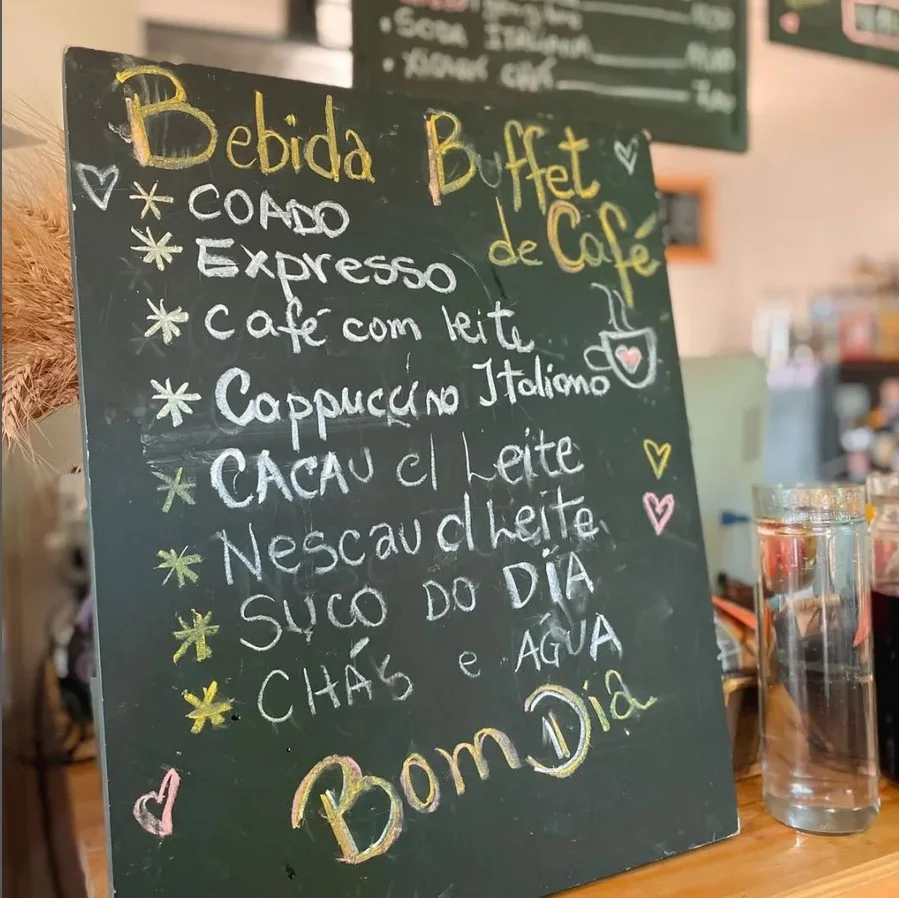 SODA ITALIANA
Bebida Buffet
de Café
COADO
Expresso
Café com leite
Cappuccino Italiano
CACAU c/ Leite
Nescau c/ Leite
SUCO DO DÍA
CHÁS e ÁGUA
Bom Día